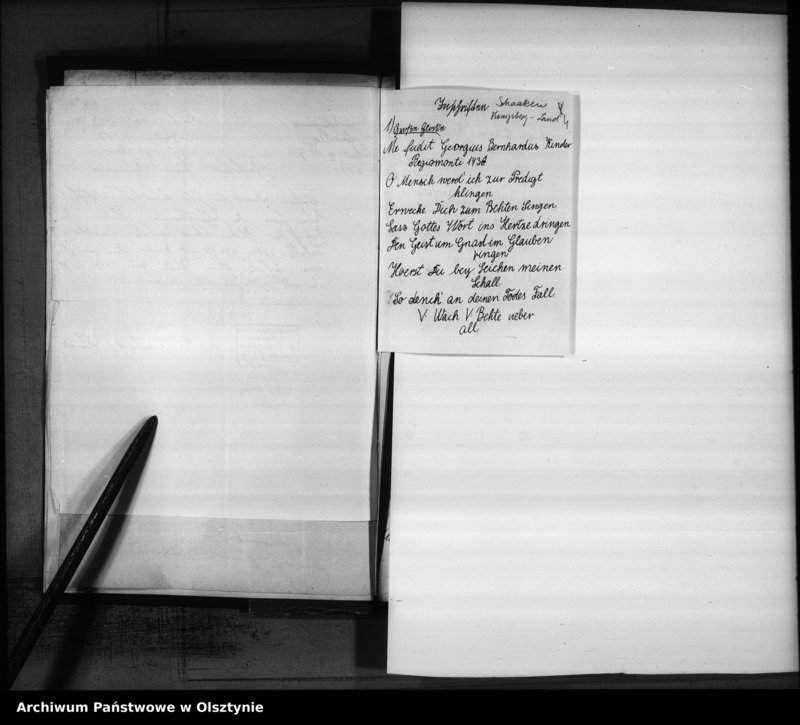 Inschriften Schaaken
Königsberg-Land
1) Großen Glocke
Me fudit Georgius Bernhardus Kinder
Regiomonti 1736
O Mensch werd' ich zur Predigt
klingen
Erwecke Dich zum Behten Singen
Lass Gottes Wort ins Hertze dringen
Den Geist um Gnad im Glauben
ringen
Hoerst Du bey Leichen meinen
Schall
So denck' an deinen Todes Fall.
V Wach V Behte ueber
all.
Archiwum Państwowe w Olsztynie